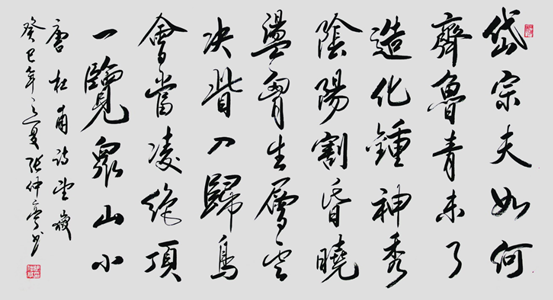 岱宗夫如何
齊魯青未了
造化鍾神秀
陰陽割昏曉
盪胷生層云
决眥入歸鳥
會當凌絶頂
一覽衆山小
唐杜甫詩望嶽
癸巳年之夏張仲亭書